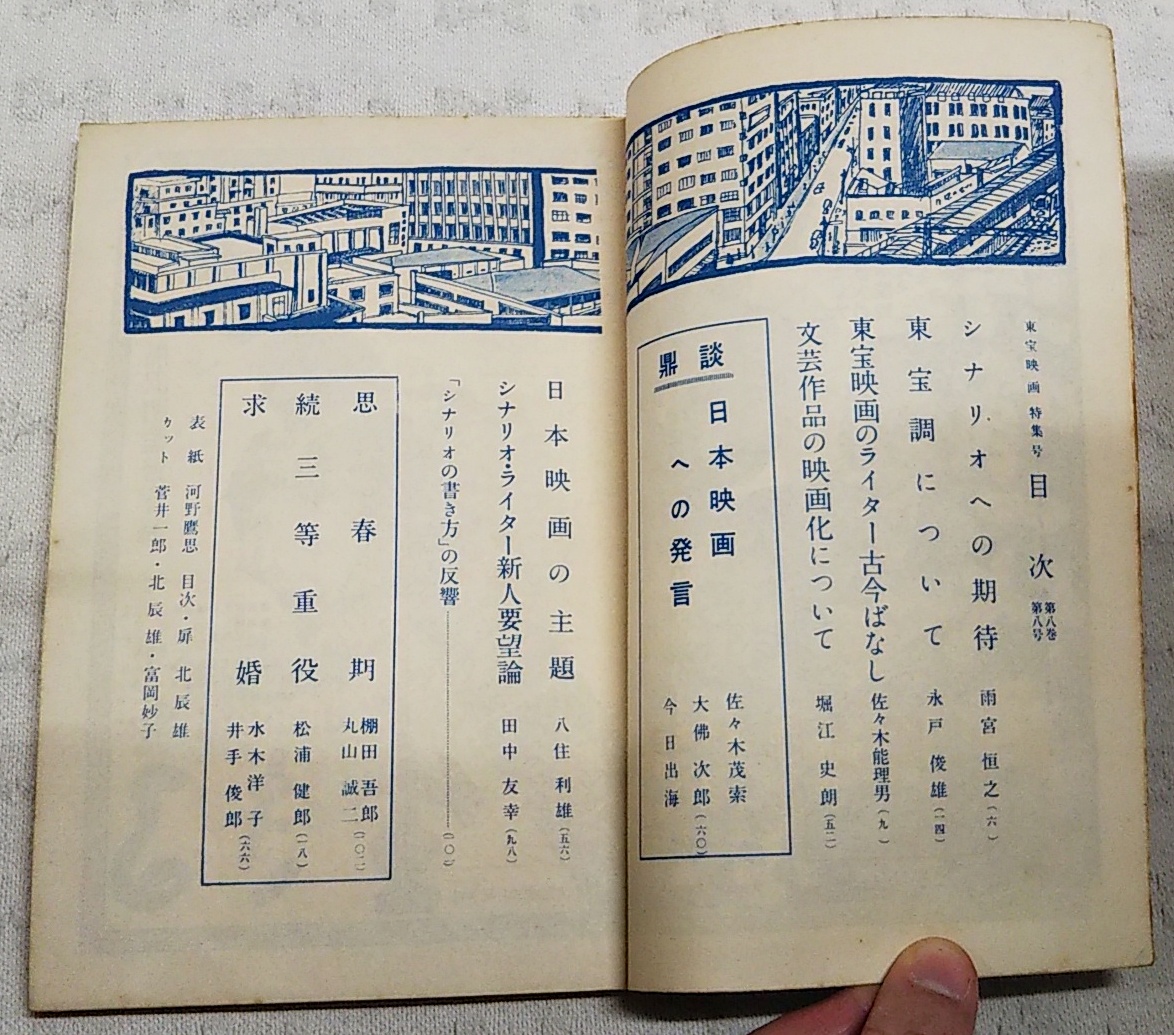 東宝映画 特集号 目次 第八巻 第八号
シナリオへの期待 雨宮恒之(六)
東宝調について 永戸俊雄(一四)
東宝映画のライター古今ばなし 佐々木能理男(九)
文芸作品の映画化について 堀江史朗(五二)
鼎談
日本映画
への発言
佐々木茂索
大佛次郎(六〇)
今日出海
日本映画の主題 八住利雄(五六)
シナリオ・ライター新人要望論 田中友幸(九八)
「シナリオの書き方」の反響(一〇一)
思春期 棚田吾郎 丸山誠二(一〇二)
続三等重役 松浦健郎(一八)
求婚 水木洋子 井手俊郎(六六)
表紙 河野鷹思 目次・扉 北辰雄
カット 菅井一郎・北辰雄・富岡妙子